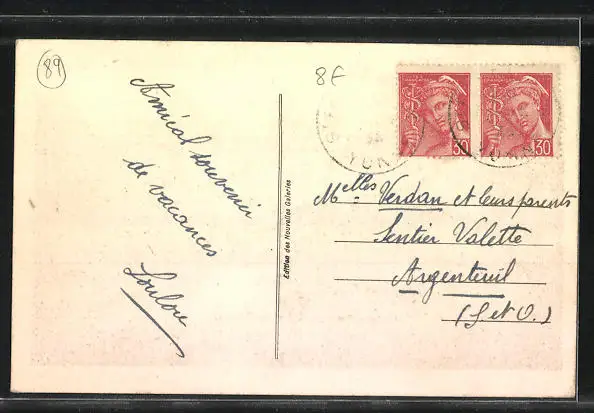 89
8F
Amical souvenir
de vacances
Loulou
Edition des Nouvelles Galeries
30
30
YON
Melles Verdan et leurs parents
Sentier Valette
Argenteuil
(S et O.)